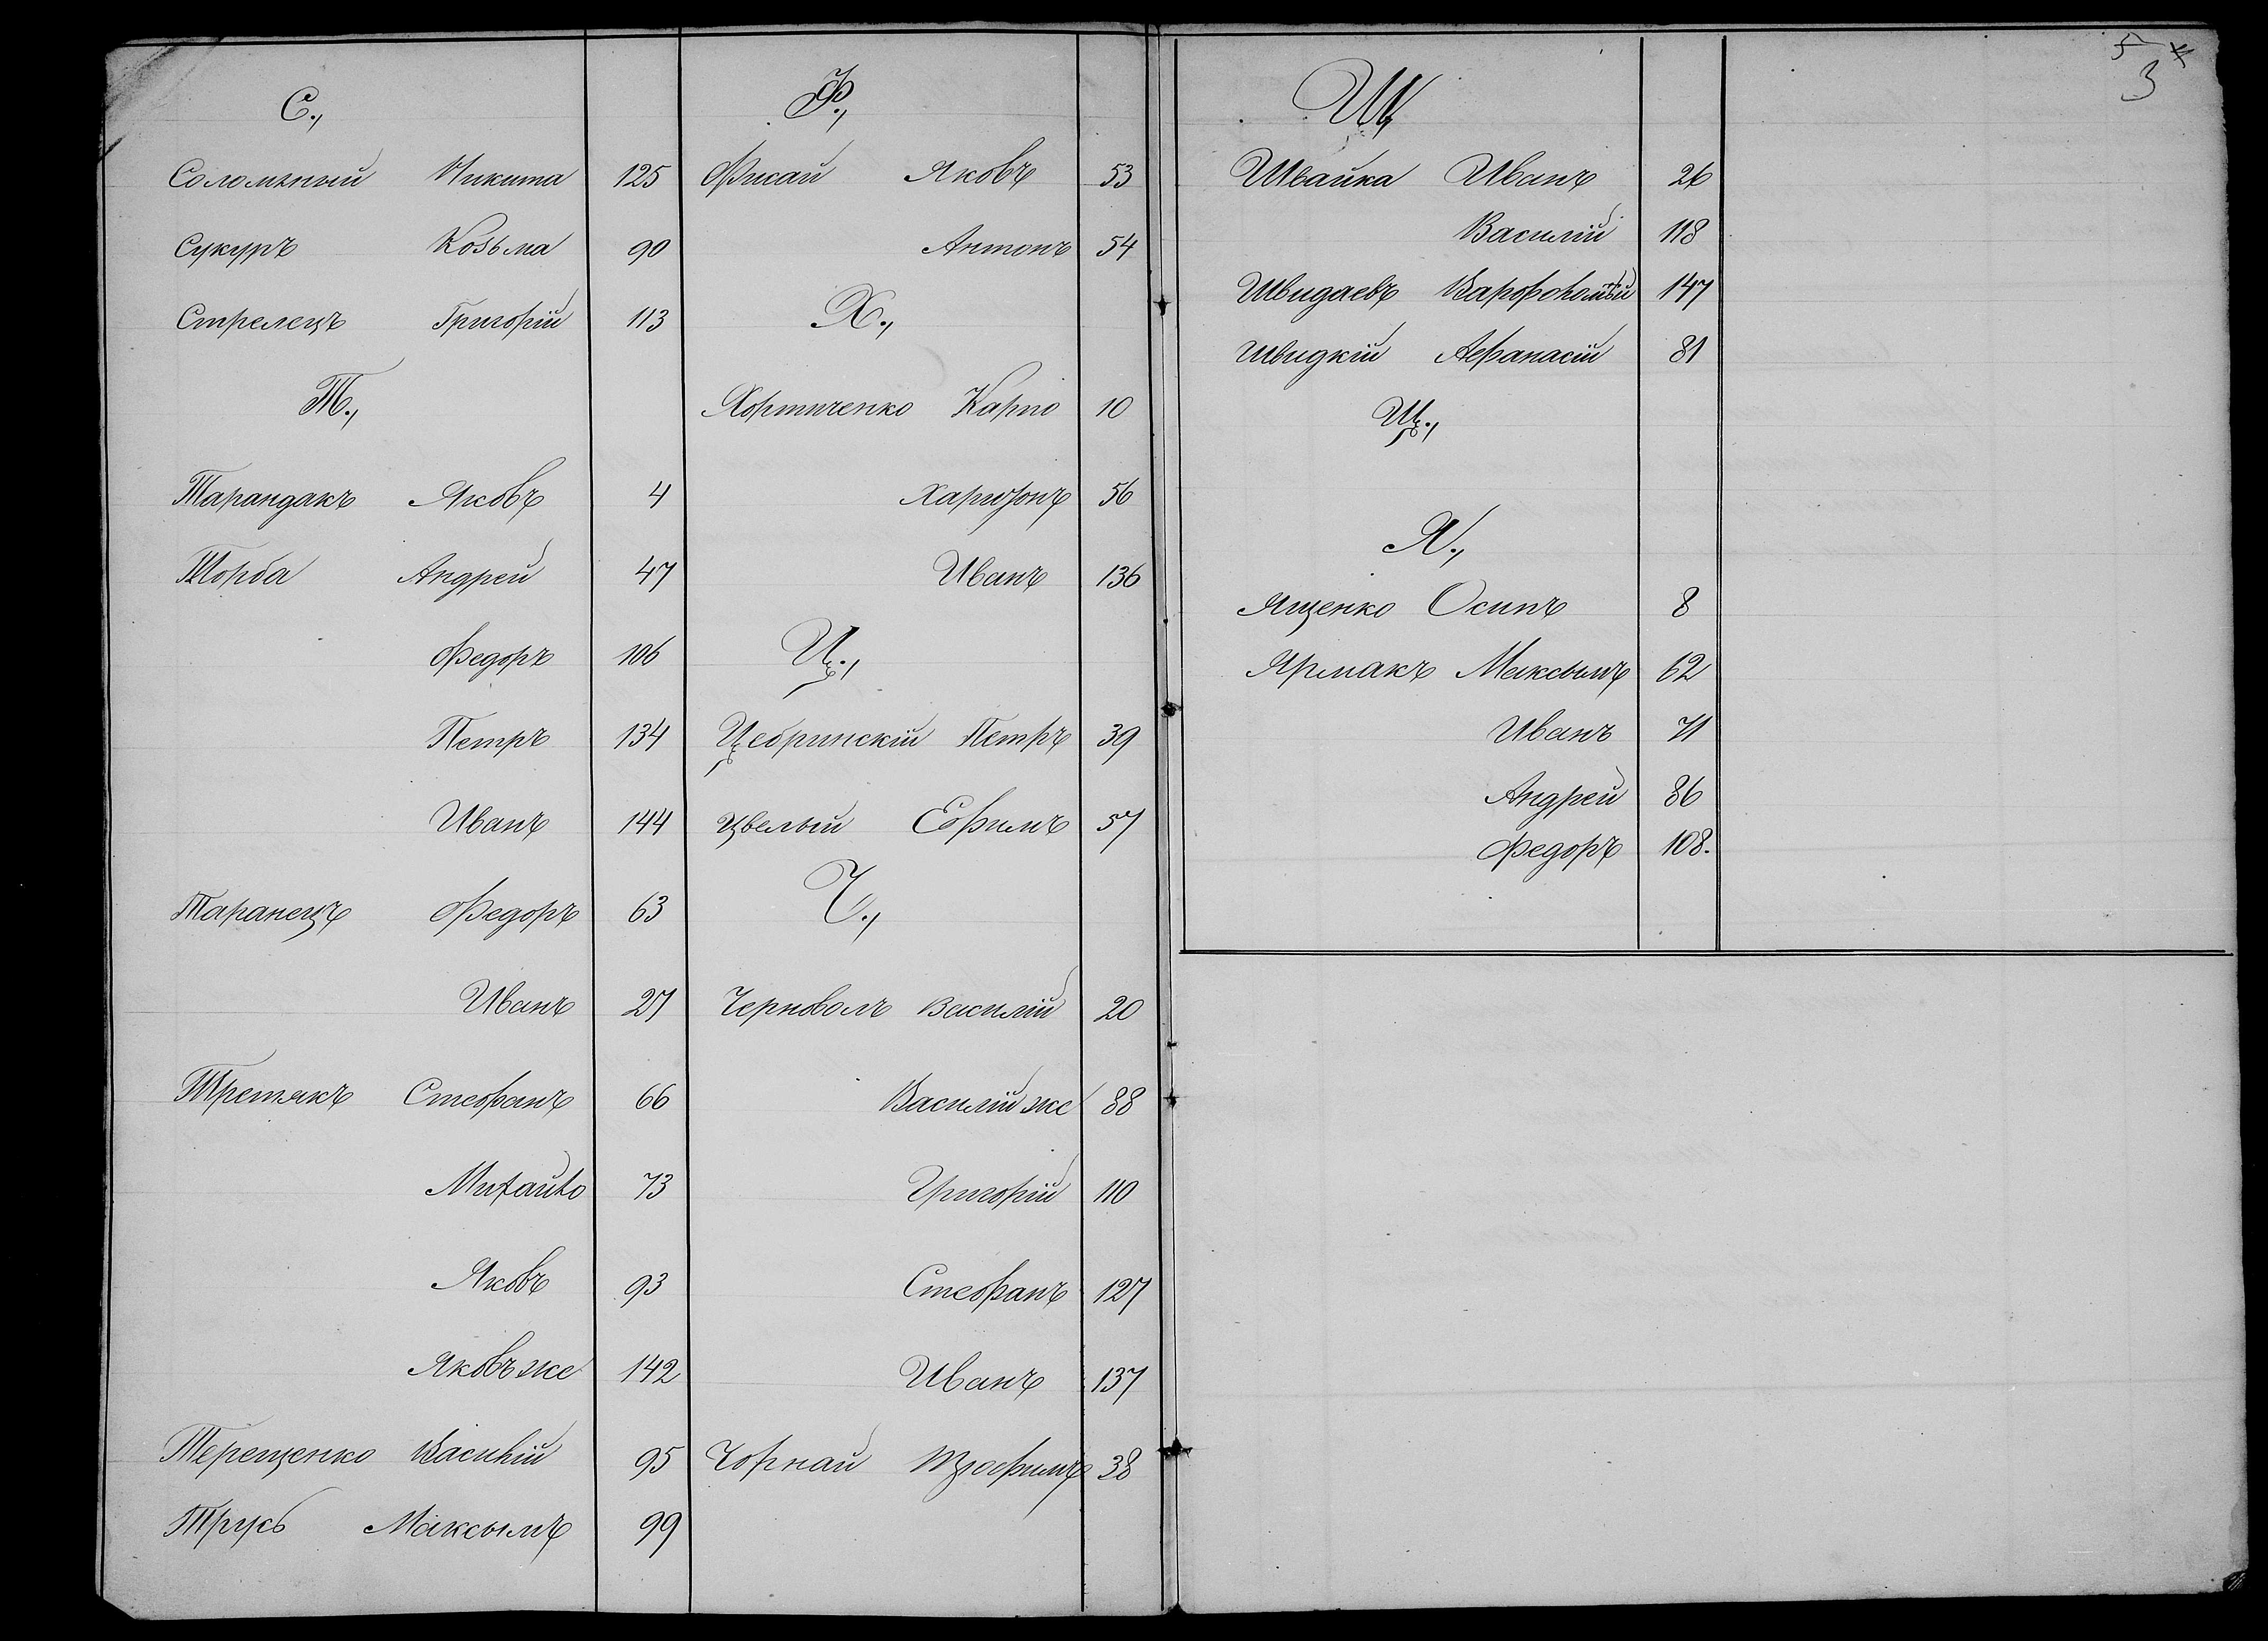 С.,
Соломяный Никита 125
Сукуръ Козьма 90
Стрелецъ Григорій 113
Т.,
Тарандакъ Яковъ 4
Торба Андрей 47
Федоръ 106
Петръ 134
Иванъ 144
Таранецъ Федоръ 63
Иванъ 27
Третякъ Стефанъ 66
Михайло 73
Яковъ 93
Яковъ же 142
Терещенко Василій 95
Трусь Максымъ 99
Ф.,
Фисай Яковъ 53
Антонъ 54
Х.,
Хортиченко Карпо 10
Харитонъ 56
Иванъ 136
Ц.,
Цебринскій Петръ 39
Цвелый Ефимъ 57
Ч.,
Черноволъ Василій 20
Василій же 88
Григорій 110
Стефанъ 127
Иванъ 137
Чорнай 38
5
3
Ш.,
Швайка Иванъ 26
Василій 118
Швидаевъ 147
Швидкій Афанасій 81
Щ.,
Я.,
Ященко Осипъ 8
Ярмакъ Максымъ 62
Иванъ 71
Андрей 86
Федоръ 108.